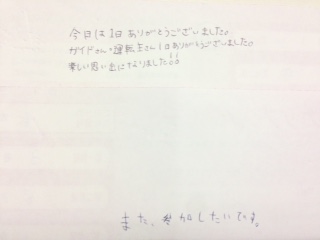 今日は1日ありがとうございました。
ガイドさん・運転手さん1日ありがとうございました。
楽しい思い出になりました。
また、参加したいです。